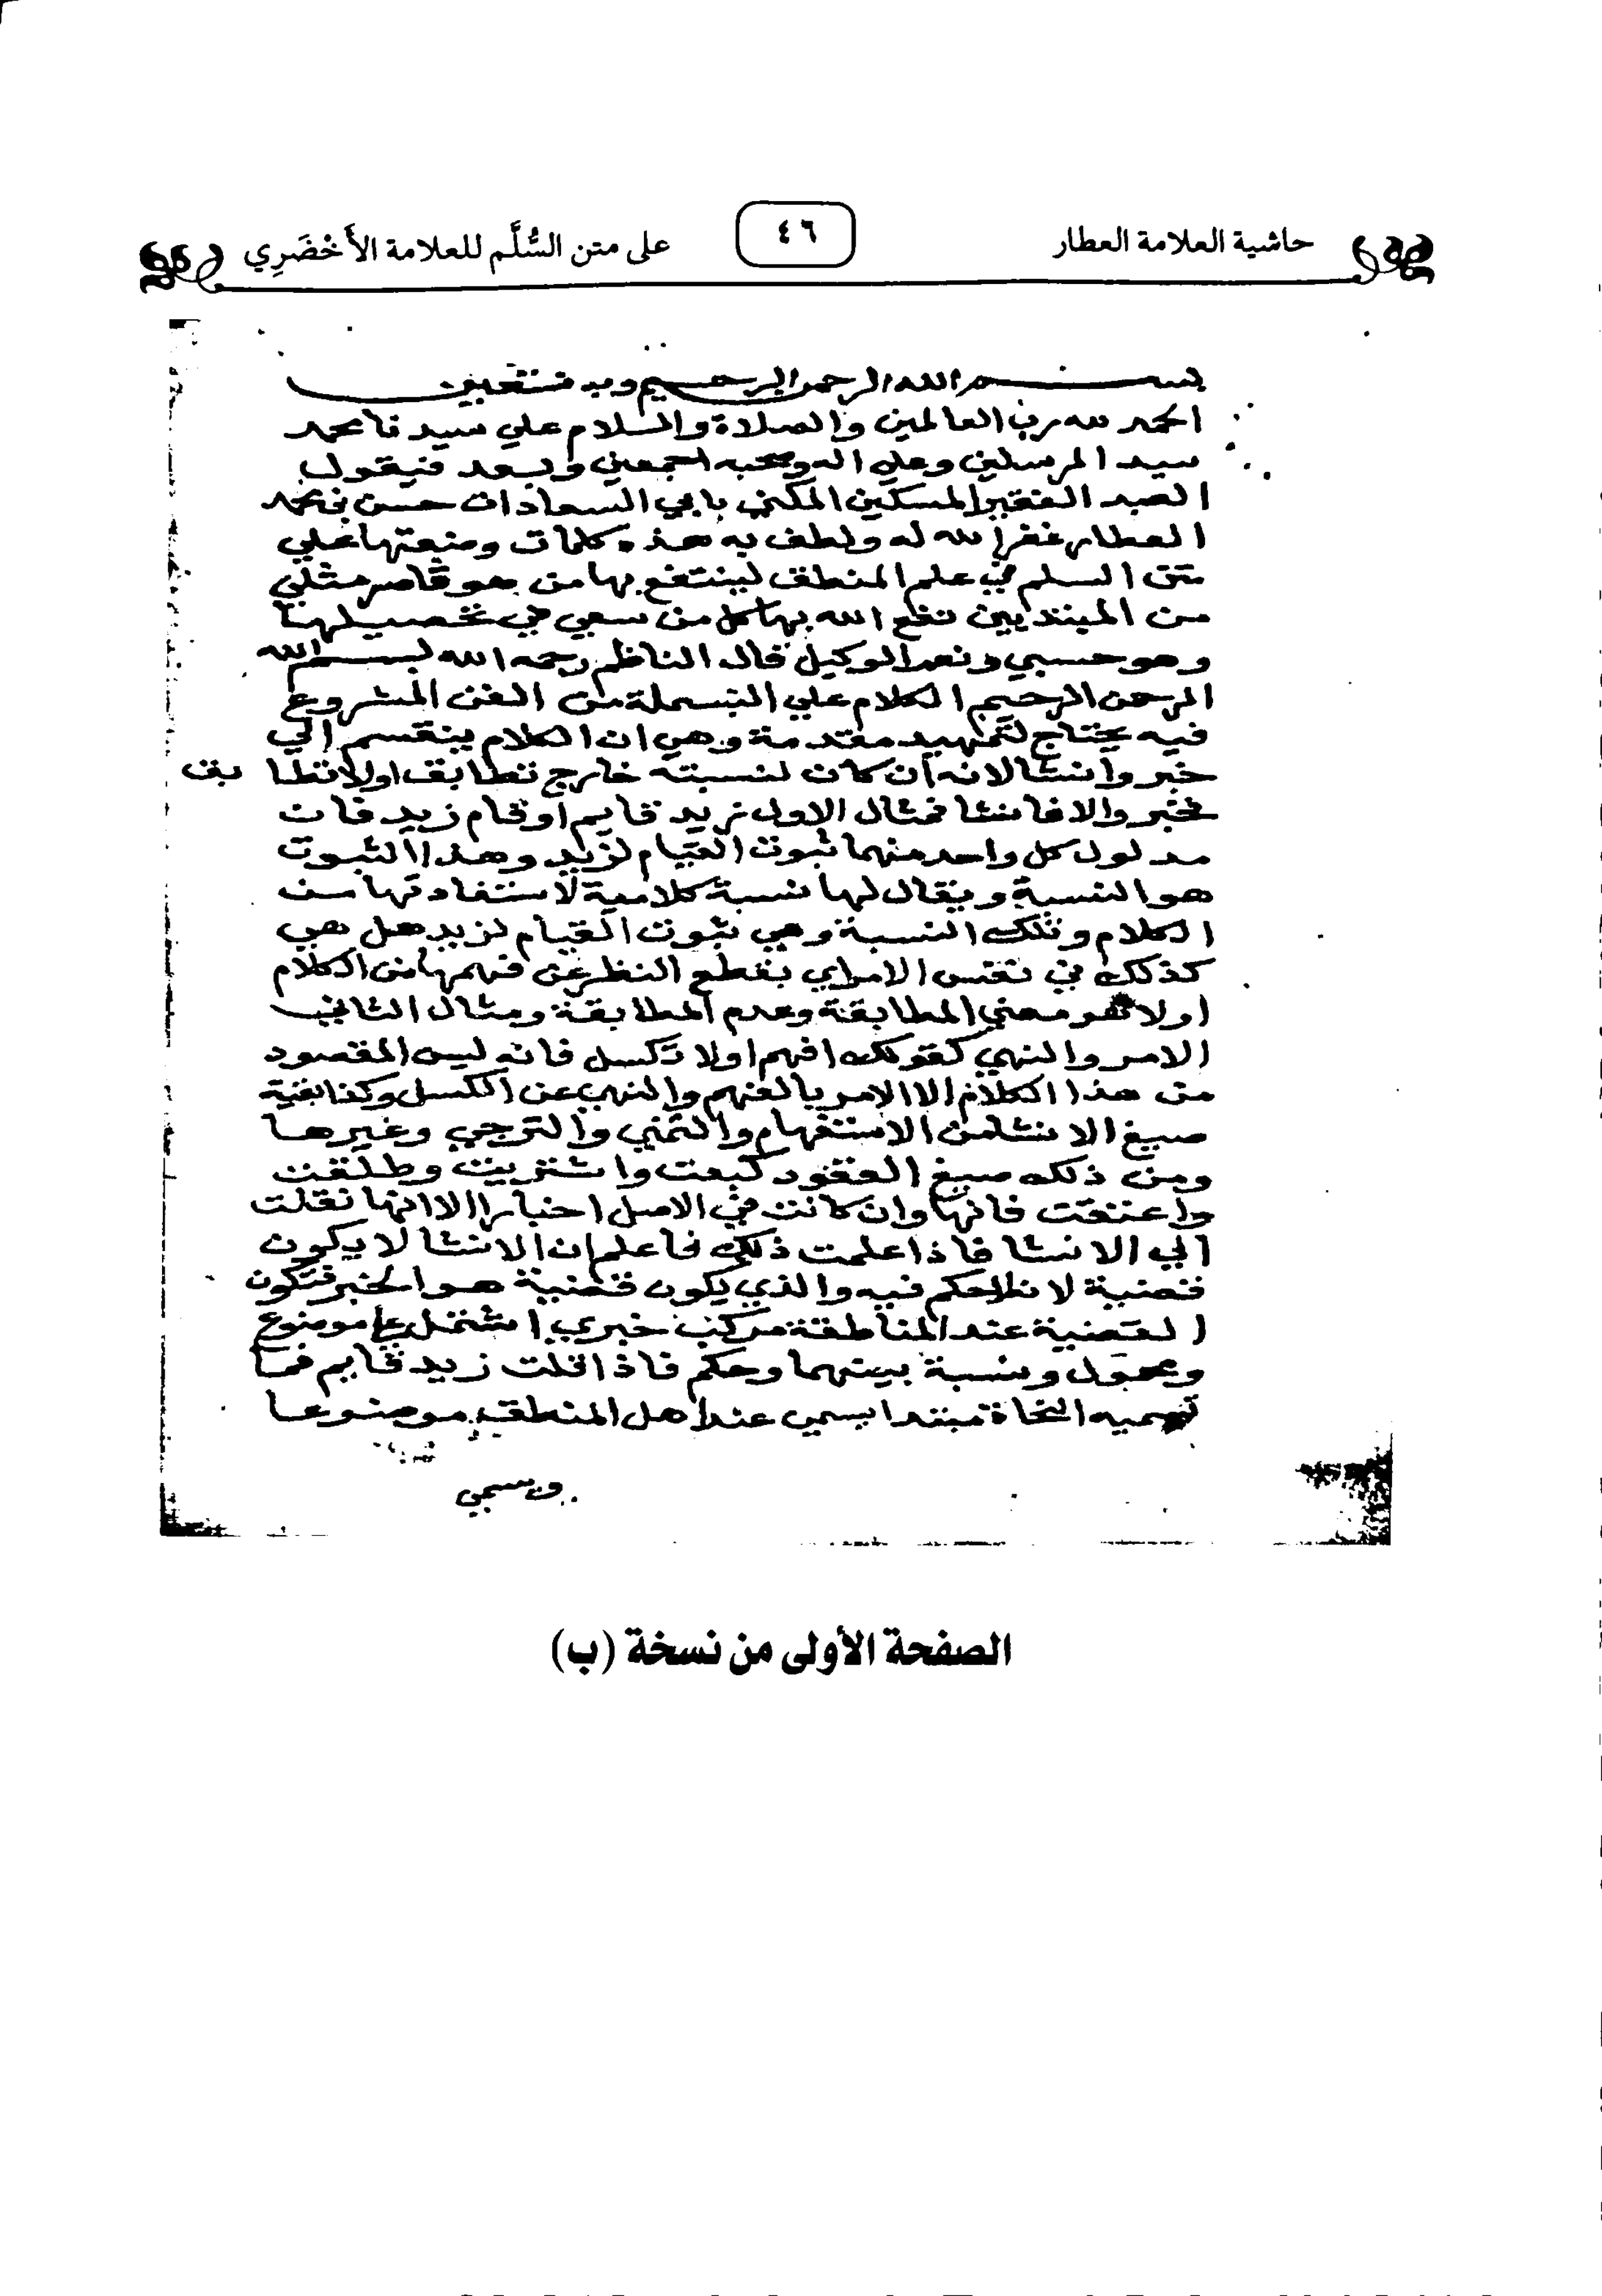 حاشية العلامة العطار
٤٦
على متن السُّلَّم للعلامة الأَخْضَرِي
بسم الله الرحمن الرحيم وبه نستعين
الحمد لله رب العالمين والصلاة والسلام علي سيدنا محمد
سيد المرسلين وعلي اله وصحبه اجمعين وبعد فيقول
العبد الفقير المسكين المكني بابي السعادات حسن بن محمد
العطار غفر الله له ولطف به هذه كلمات وضعتها علي
متن السلم في علم المنطق لينتفع بها من هو قاصر مثلي
من المبتديين نفع الله بها كل من سعي في تحصيلها
وهو حسبي ونعم الوكيل قال الناظم رحمه الله بسم الله
الرحمن الرحيم الكلام علي البسملة من الفن المشروع
فيه يحتاج لتمهيد مقدمة وهي ان الكلام ينقسم الي
خبر وانشا لانه ان كان لنسبته خارج تطابقه اولا تطابق
فخبر والا فانشا فمثال الاول زيد قايم او قام زيد فان
مدلول كل واحد منهما ثبوت القيام لزيد وهذا الثبوت
هو النسبة ويقال لها نسبة كلامية لاستفادتها من
الكلام وتلك النسبة وهي ثبوت القيام لزيد هل هي
كذلك في نفس الامر اي بقطع النظر عن فهمها من الكلام
اولا هو معني المطابقة وعدم المطابقة ومثال الثاني
الامر والنهي كقولك افهم اولا تكسل فانه ليس المقصود
من هذا الكلام الا الامر بالفهم والنهي عن الكسل وكذا بقية
صيغ الانشا من الاستفهام والتمني والترجي وغيرها
ومن ذلك صيغ العقود كبعت واشتريت وطلقت
واعتقت فانها وان كانت في الاصل اخبارا الا انها نقلت
الي الانشا فاذا علمت ذلك فاعلم ان الانشا لا يكون
قضية لا حكم فيه والذي يكون قضية هو الخبر فتكون
القضية عند المناطقة مركب خبري اشتمل علي موضوع
ومحمول ونسبة بينهما وحكم فاذا قلت زيد قايم فما
تسميه النحاة مبتدا يسمي عند اهل المنطق موضوعا
ويسمي
الصفحة الأولى من نسخة (ب)